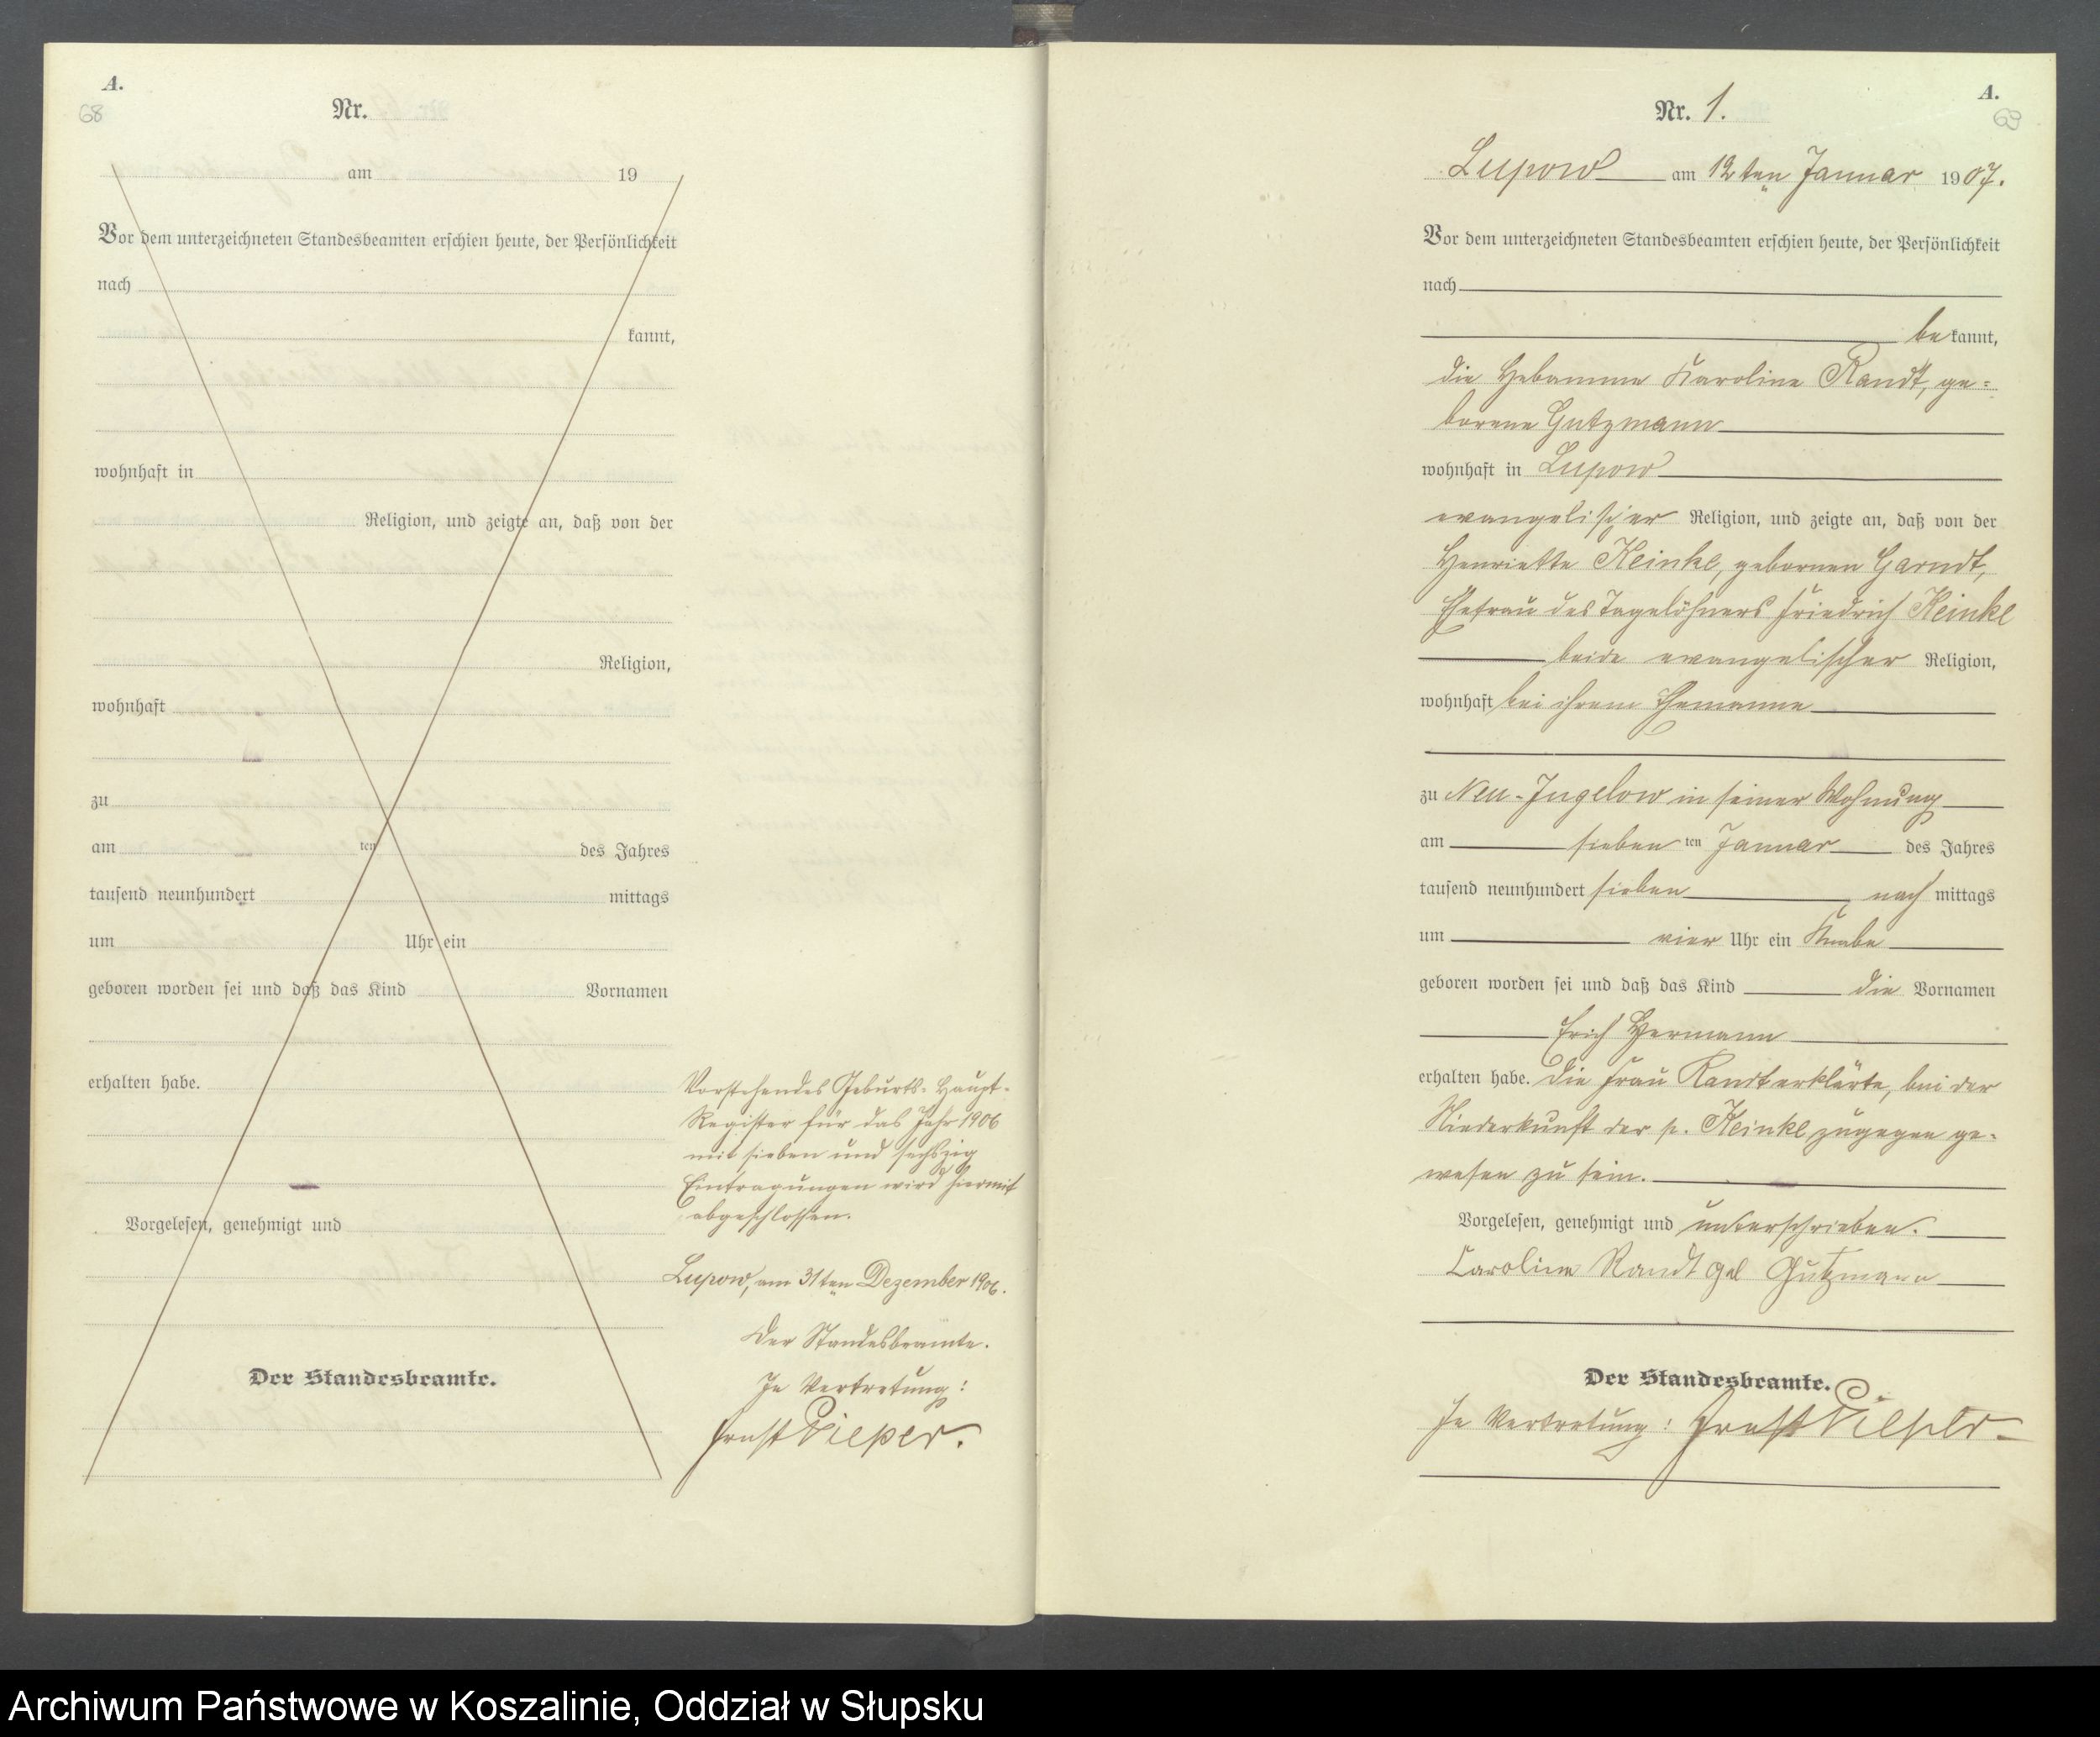 A.
68
Nr.
am 19
Vor dem unterzeichneten Standesbeamten erschien heute, der Persönlichkeit
nach
kannt,
wohnhaft in
Religion, und zeigte an, daß von der
Religion,
wohnhaft
zu
am ten des Jahres
tausend neunhundert mittags
um Uhr ein
geboren worden sei und daß das Kind Vornamen
erhalten habe.
Vorgelesen, genehmigt und
Der Standesbeamte.
Vorstehendes Geburts-Haupt-
Register für das Jahr 1906
mit sieben und sechszig
Eintragungen wird hiermit
abgeschlossen.
Lupow, am 31ten Dezember 1906.
Der Standesbeamte.
In Vertretung:
Ernst Pieper.
A.
69
Nr. 1.
Lupow am 12ten Januar 1907.
Vor dem unterzeichneten Standesbeamten erschien heute, der Persönlichkeit
nach
bekannt,
die Hebamme Karoline Randt, ge=
borene Gutzmann
wohnhaft in Lupow
evangelischer Religion, und zeigte an, daß von der
Henriette Reinke, gebornen Garndt,
Ehefrau des Tagelöhners Friedrich Reinke
beide evangelischer Religion,
wohnhaft bei ihrem Ehemanne
zu Neu-Jugelow in seiner Wohnung
am sieben ten Januar des Jahres
tausend neunhundert sieben nach mittags
um vier Uhr ein Knabe
geboren worden sei und daß das Kind die Vornamen
Erich Hermann
erhalten habe. Die Frau Randt erklärte, bei der
Niederkunft der p. Reinke zugegen ge-
wesen zu sein.
Vorgelesen, genehmigt und unterschrieben.
Caroline Randt geb Gutzmann
Der Standesbeamte.
In Vertretung: Ernst Pieper
Archiwum Państwowe w Koszalinie, Oddział w Słupsku